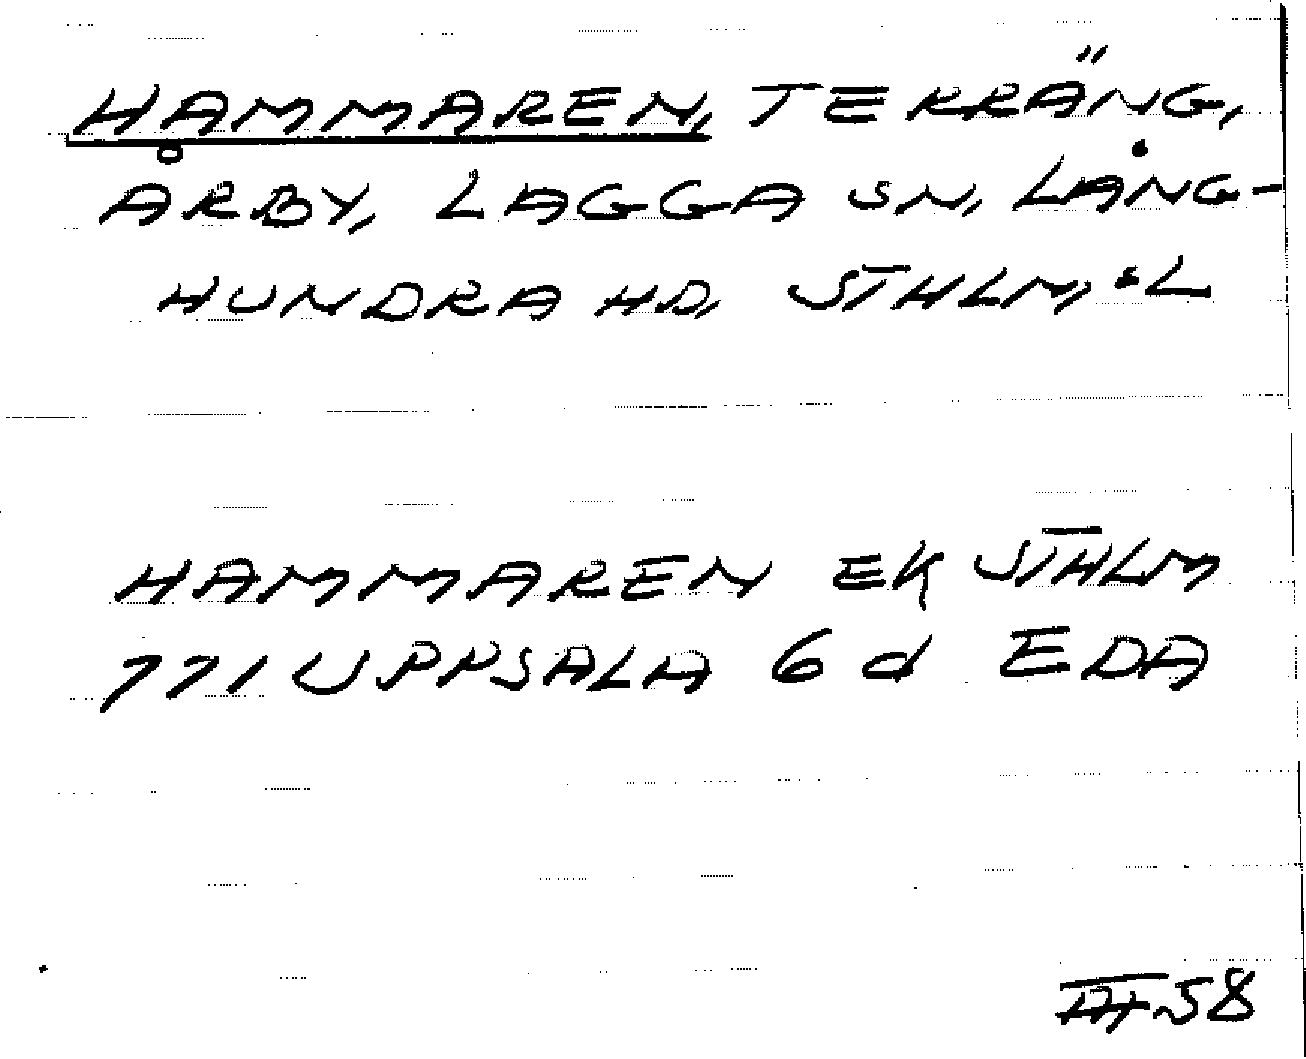 HAMMAREN, TERRÄNG,
ÅRBY, LAGGA SN, LÅNG-
HUNDRA HD, STHLM:S L
HAMMAREN EK STHLM
771 UPPSALA 6 d EDA
58